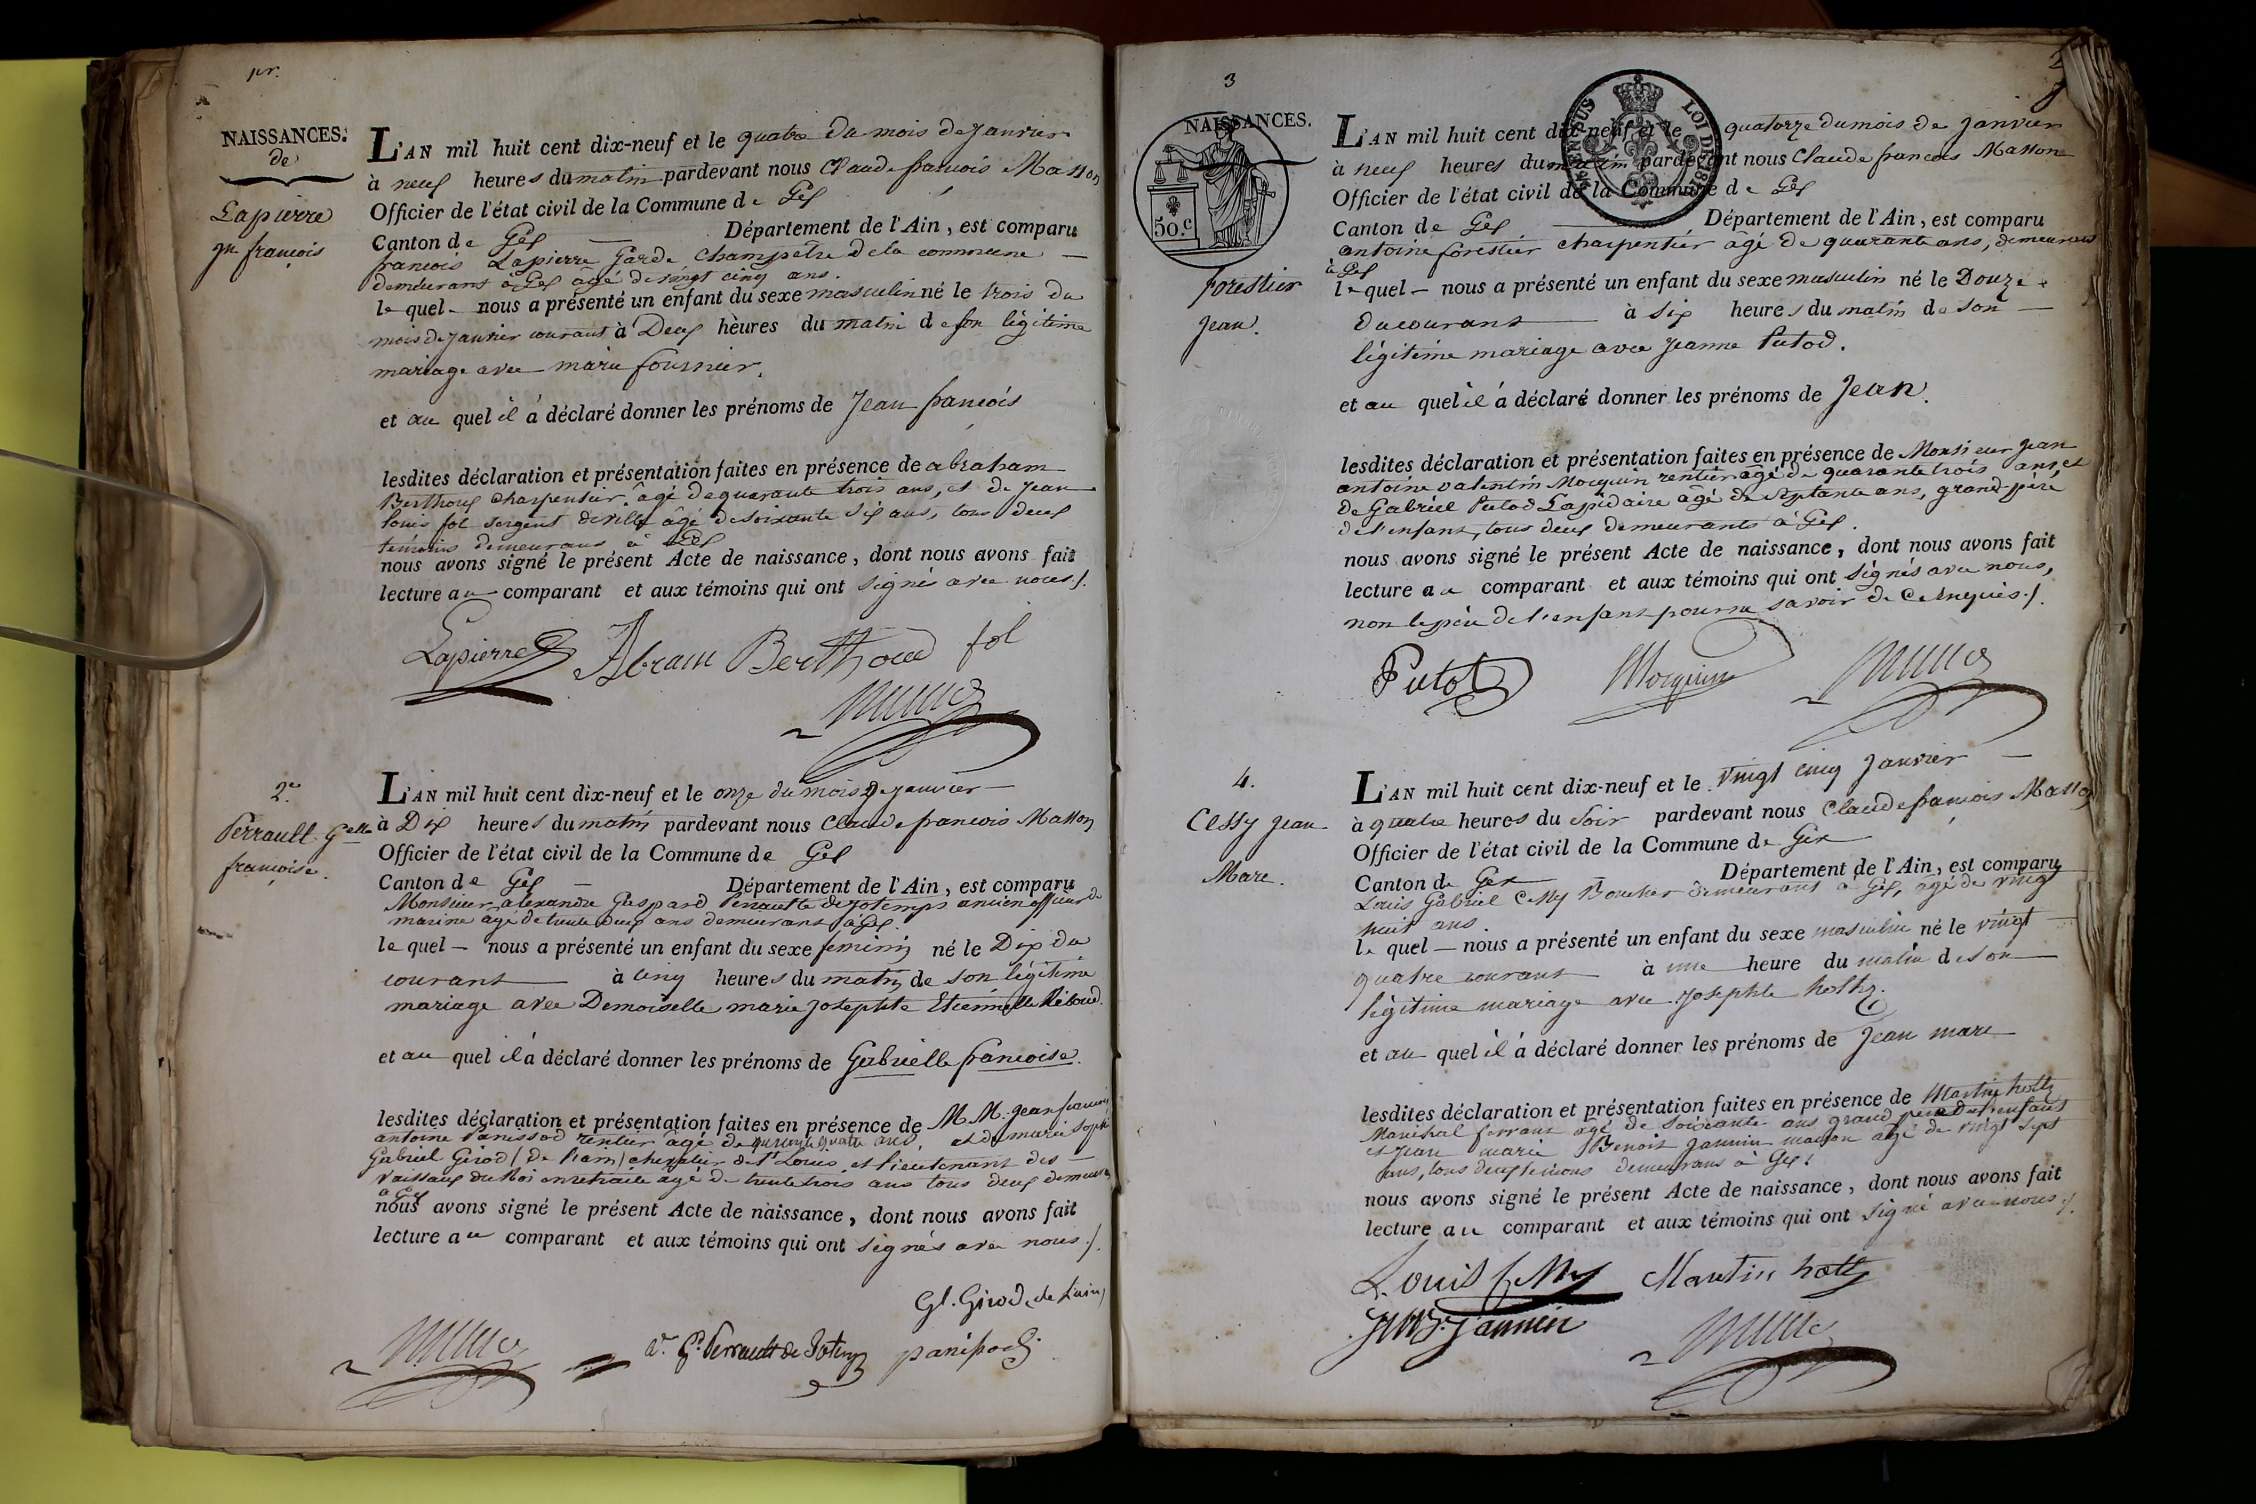 pr.
NAISSANCES.
de
Lapierre
jn françois
L'AN mil huit cent dix-neuf et le quatre du mois de Janvier
à neuf heures du matin pardevant nous Claude françois Masson
Officier de l'état civil de la Commune de Gex
Canton de Gex — Département de l'Ain, est comparu
françois Lapierre Garde champêtre de la commune —
demeurant à Gex âgé de vingt cinq ans.
le quel - nous a présenté un enfant du sexe masculin né le trois du
mois de janvier courant à Deux heures du matin de son légitime
mariage avec marie fournier.
et au quel il a déclaré donner les prénoms de Jean françois
lesdites déclaration et présentation faites en présence de abraham
Berthoux charpentier âgé de quarante trois ans, et de Jean
louis fol sergent de ville âgé de soixante six ans, tous deux
temoins demeurans à Gex
nous avons signé le présent Acte de naissance, dont nous avons fait
lecture au comparant et aux témoins qui ont signés avec nous ./.
Lapierre Abram Berthoud fol
2e.
Perrault Gelle
françoise.
L'AN mil huit cent dix-neuf et le onze du mois de janvier —
à Dix heures du matin pardevant nous Claude françois Masson
Officier de l'état civil de la Commune de Gex
Canton de Gex — Département de l'Ain, est comparu
Monsieur alexandre Gaspard Perrault de jotemps ancien officier de
marine âgé de trente deux ans demeurant à Gex.
le quel — nous a présenté un enfant du sexe feminin né le Dix du
courant — à cinq heures du matin de son légitime
mariage avec Demoiselle marie josephte Etiennette Réboud.
et au quel il a déclaré donner les prénoms de Gabrielle françoise.
lesdites déclaration et présentation faites en présence de M.M. jean françois
antoine Panissod rentier âgé de quatre ans, et de marie joseph
Gabriel Girod (de l'ain) chevalier de St Louis et lieutenant des —
vaisseaux du Roi en retraite âgé de trente trois ans tous deux demeurans
à Gex
nous avons signé le présent Acte de naissance, dont nous avons fait
lecture au comparant et aux témoins qui ont signés avec nous ./.
Gl. Girod (de l'ain)
G. Perrault de Jotemps panissod
3
NAISSANCES.
50.c
LOI DU
forestier
Jean.
L'AN mil huit cent dix-neuf et le quatorze du mois de janvier
à neuf heures du matin pardevant nous Claude françois Masson
Officier de l'état civil de la Commune de Gex
Canton de Gex — Département de l'Ain, est comparu
antoine forestier charpentier âgé de quarante ans, demeurant
à Gex
le quel — nous a présenté un enfant du sexe masculin né le Douze
du courant — à six heures du matin de son —
légitime mariage avec Jeanne Putod.
et au quel il a déclaré donner les prénoms de Jean.
lesdites déclaration et présentation faites en présence de Monsieur Jean
antoine valentin Morquin rentier âgé de quarante trois ans, et
de Gabriel Putod Lapidaire âgé de septante ans, grand-père
de l'enfant, tous deux demeurants à Gex.
nous avons signé le présent Acte de naissance, dont nous avons fait
lecture au comparant et aux témoins qui ont signés avec nous,
non le père de l'enfant pour ne savoir de ce enquis ./.
Putod Morquin
4.
Cessy jean
Marc.
L'AN mil huit cent dix-neuf et le vingt cinq Janvier —
à quatre heures du soir pardevant nous Claude françois Masson
Officier de l'état civil de la Commune de Gex
Canton de Gex Département de l'Ain, est comparu
Louis Gabriel Cessy Boucher demeurant à Gex, agé de vingt
huit ans.
le quel — nous a présenté un enfant du sexe masculin né le vingt —
quatre courant à une heure du matin de son
légitime mariage avec Josephte holtz.
et au quel il a déclaré donner les prénoms de Jean marc
lesdites déclaration et présentation faites en présence de Martin holtz
Maréchal ferrant agé de soixante ans grand pere de l'enfant
et Jean marie Benoit Jannin maçon agé de vingt sept
ans, tous deux témoins demeurans à Gex.
nous avons signé le présent Acte de naissance, dont nous avons fait
lecture au comparant et aux témoins qui ont signé avec nous ./.
Louis Cessy Martin holtz
J M B. Jannin